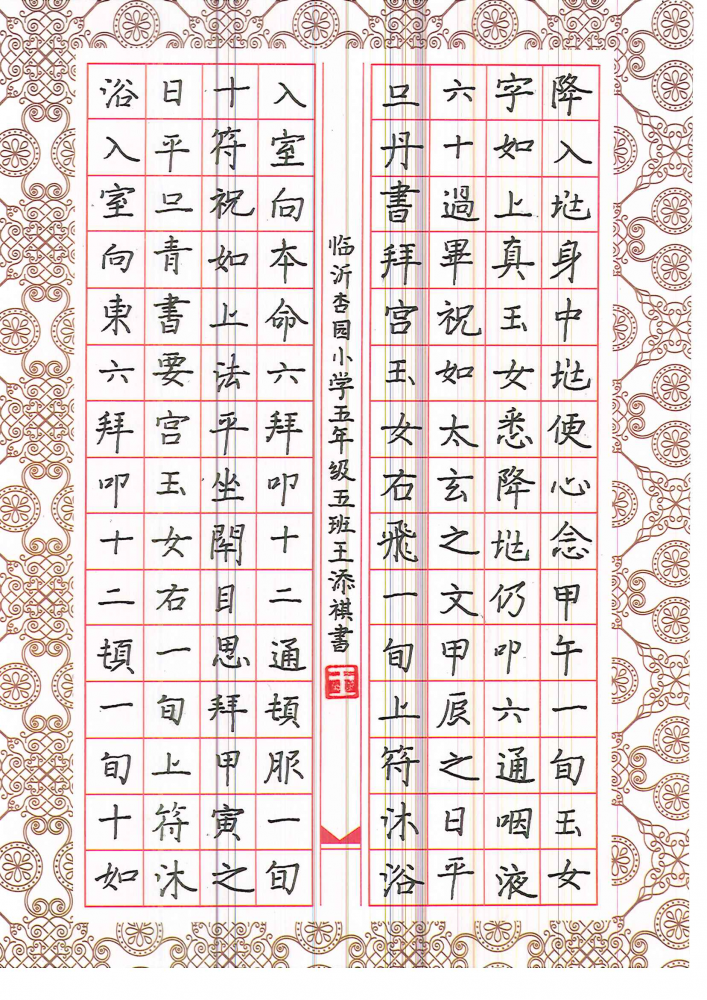 降入兆身中兆便心念甲午一旬玉女
字如上真玉女悉降兆仍叩六通咽液
六十過畢祝如太玄之文甲辰之日平
旦丹書拜宫玉女右飛一旬上符沐浴
临沂杏园小学五年级五班王添祺書
王
入室向本命六拜叩十二通頓服一旬
十符祝如上法平坐閉目思拜甲寅之
日平旦青書要宫玉女右一旬上符沐
浴入室向東六拜叩十二頓一旬十如